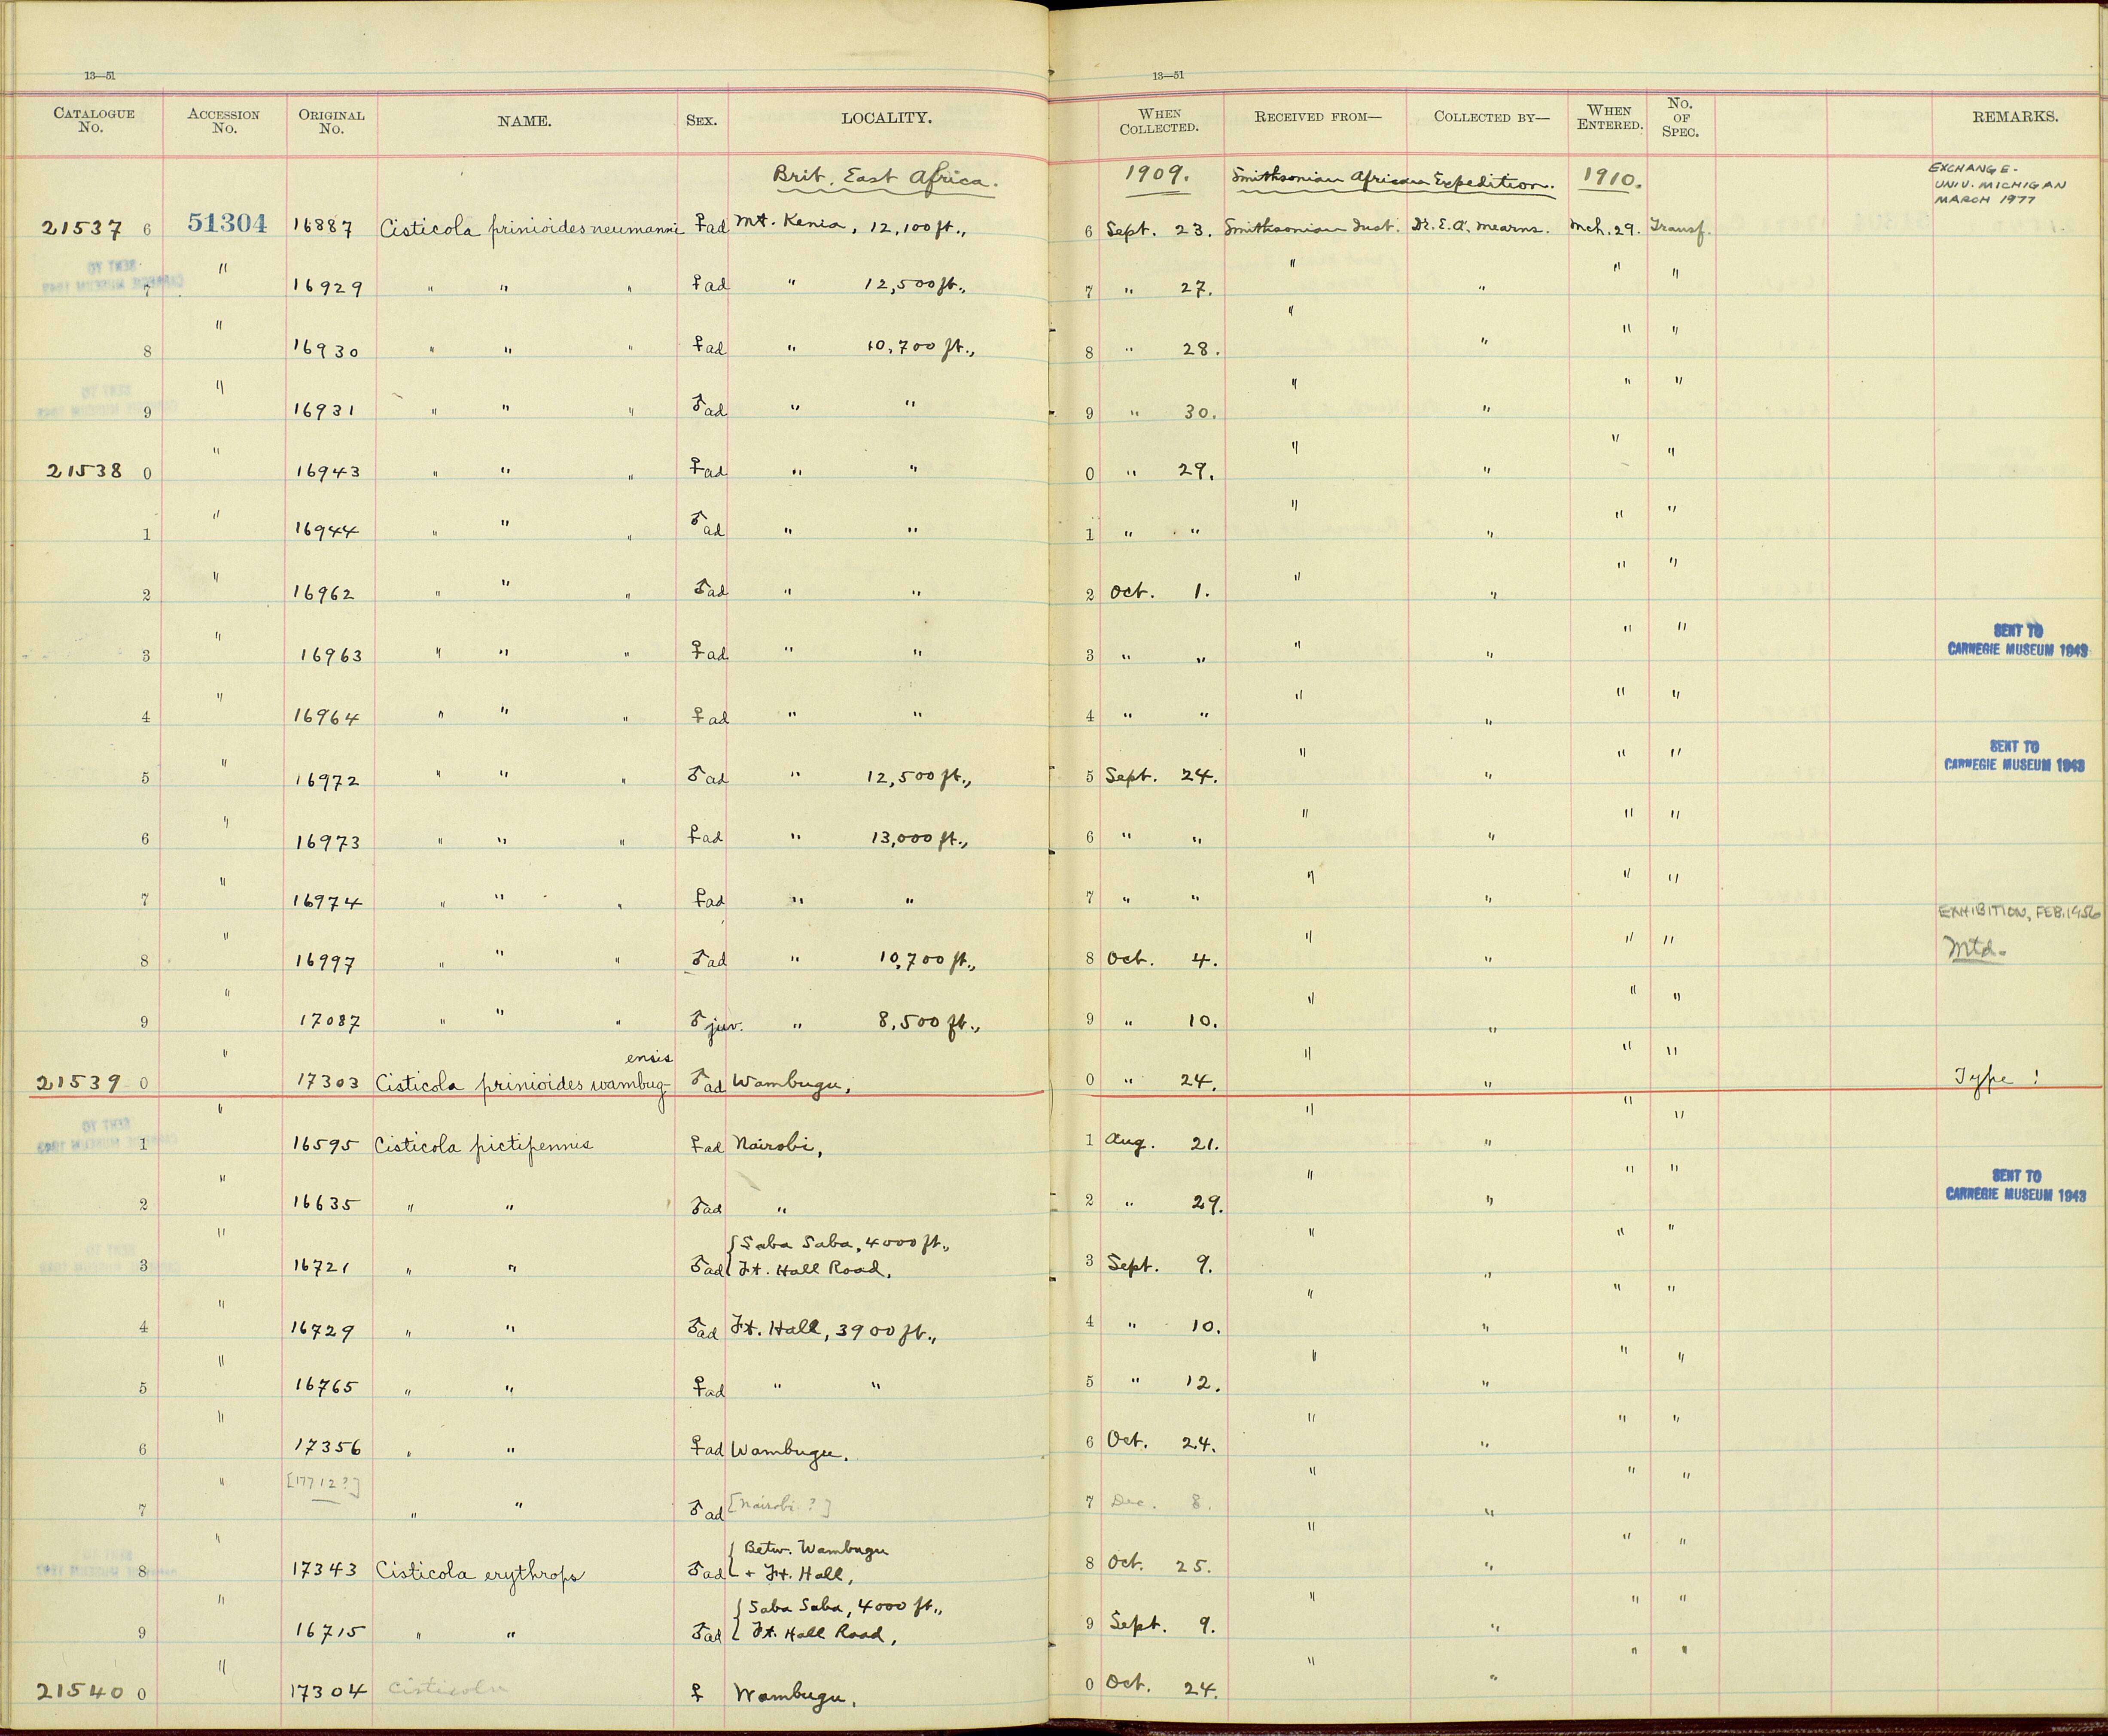 13—51
13—51
CATALOGUE No. ACCESSION No. ORIGINAL No. NAME. SEX. LOCALITY. WHEN COLLECTED. RECEIVED FROM— COLLECTED BY— WHEN ENTERED. No. OF SPEC. REMARKS.
Brit. East Africa. 1909. Smithsonian African Expedition. 1910. EXCHANGE.
UNIV. MICHIGAN
MARCH 1977
21537 6 51304 16887 Cisticola prinioides neumanni ♀ad Mt. Kenia, 12,100 ft., 6 Sept. 23. Smithsonian Inst. Dr. E. A. Mearns. Mch. 29. Transf.
7 " 16929 " " " ♀ad " 12,500 ft., 7 " 27. " " " "
8 " 16930 " " " ♀ad " 10,700 ft., 8 " 28. " " " "
9 " 16931 " " " ♂ad " " 9 " 30. " " " "
21538 0 " 16943 " " " ♀ad " " 0 " 29. " " " "
1 " 16944 " " " ♂ad " " 1 " " " " " "
2 " 16962 " " " ♂ad " " 2 Oct. 1. " " " "
3 " 16963 " " " ♀ad " " 3 " " " " " " SENT TO
CARNEGIE MUSEUM 1943
4 " 16964 " " " ♀ad " " 4 " " " " " "
5 " 16972 " " " ♂ad " 12,500 ft., 5 Sept. 24. " " " " SENT TO
CARNEGIE MUSEUM 1943
6 " 16973 " " " ♀ad " 13,000 ft., 6 " " " " " "
7 " 16974 " " " ♀ad " " 7 " " " " " "
EXHIBITION, FEB. 1956
8 " 16997 " " " ♂ad " 10,700 ft., 8 Oct. 4. " " " " Mtd.
9 " 17087 " " " ♂ juv. " 8,500 ft., 9 " 10. " " " "
ensis
21539 0 " 17303 Cisticola prinioides wambug- ♂ad Wambugu, 0 " 24. " " " " Type !
1 " 16595 Cisticola pictipennis ♀ad Nairobi, 1 Aug. 21. " " " "
2 " 16635 " " ♂ad " 2 " 29. " " " " SENT TO
CARNEGIE MUSEUM 1943
Saba Saba, 4000 ft.,
3 " 16721 " " ♂ad Ft. Hall Road, 3 Sept. 9. " " " "
4 " 16729 " " ♂ad Ft. Hall, 3900 ft., 4 " 10. " " " "
5 " 16765 " " ♀ad " " 5 " 12. " " " "
6 " 17356 " " ♀ad Wambugu. 6 Oct. 24. " " " "
7 " [17712?] " " ♂ad [Nairobi ?] 7 Dec. 8. " " " "
Betw. Wambugu
8 " 17343 Cisticola erythrops ♂ad + Ft. Hall, 8 Oct. 25. " " " "
Saba Saba, 4000 ft.,
9 " 16715 " " ♂ad Ft. Hall Road, 9 Sept. 9. " " " "
21540 0 " 17304 Cisticola ♀ Wambugu, 0 Oct. 24. " " " "